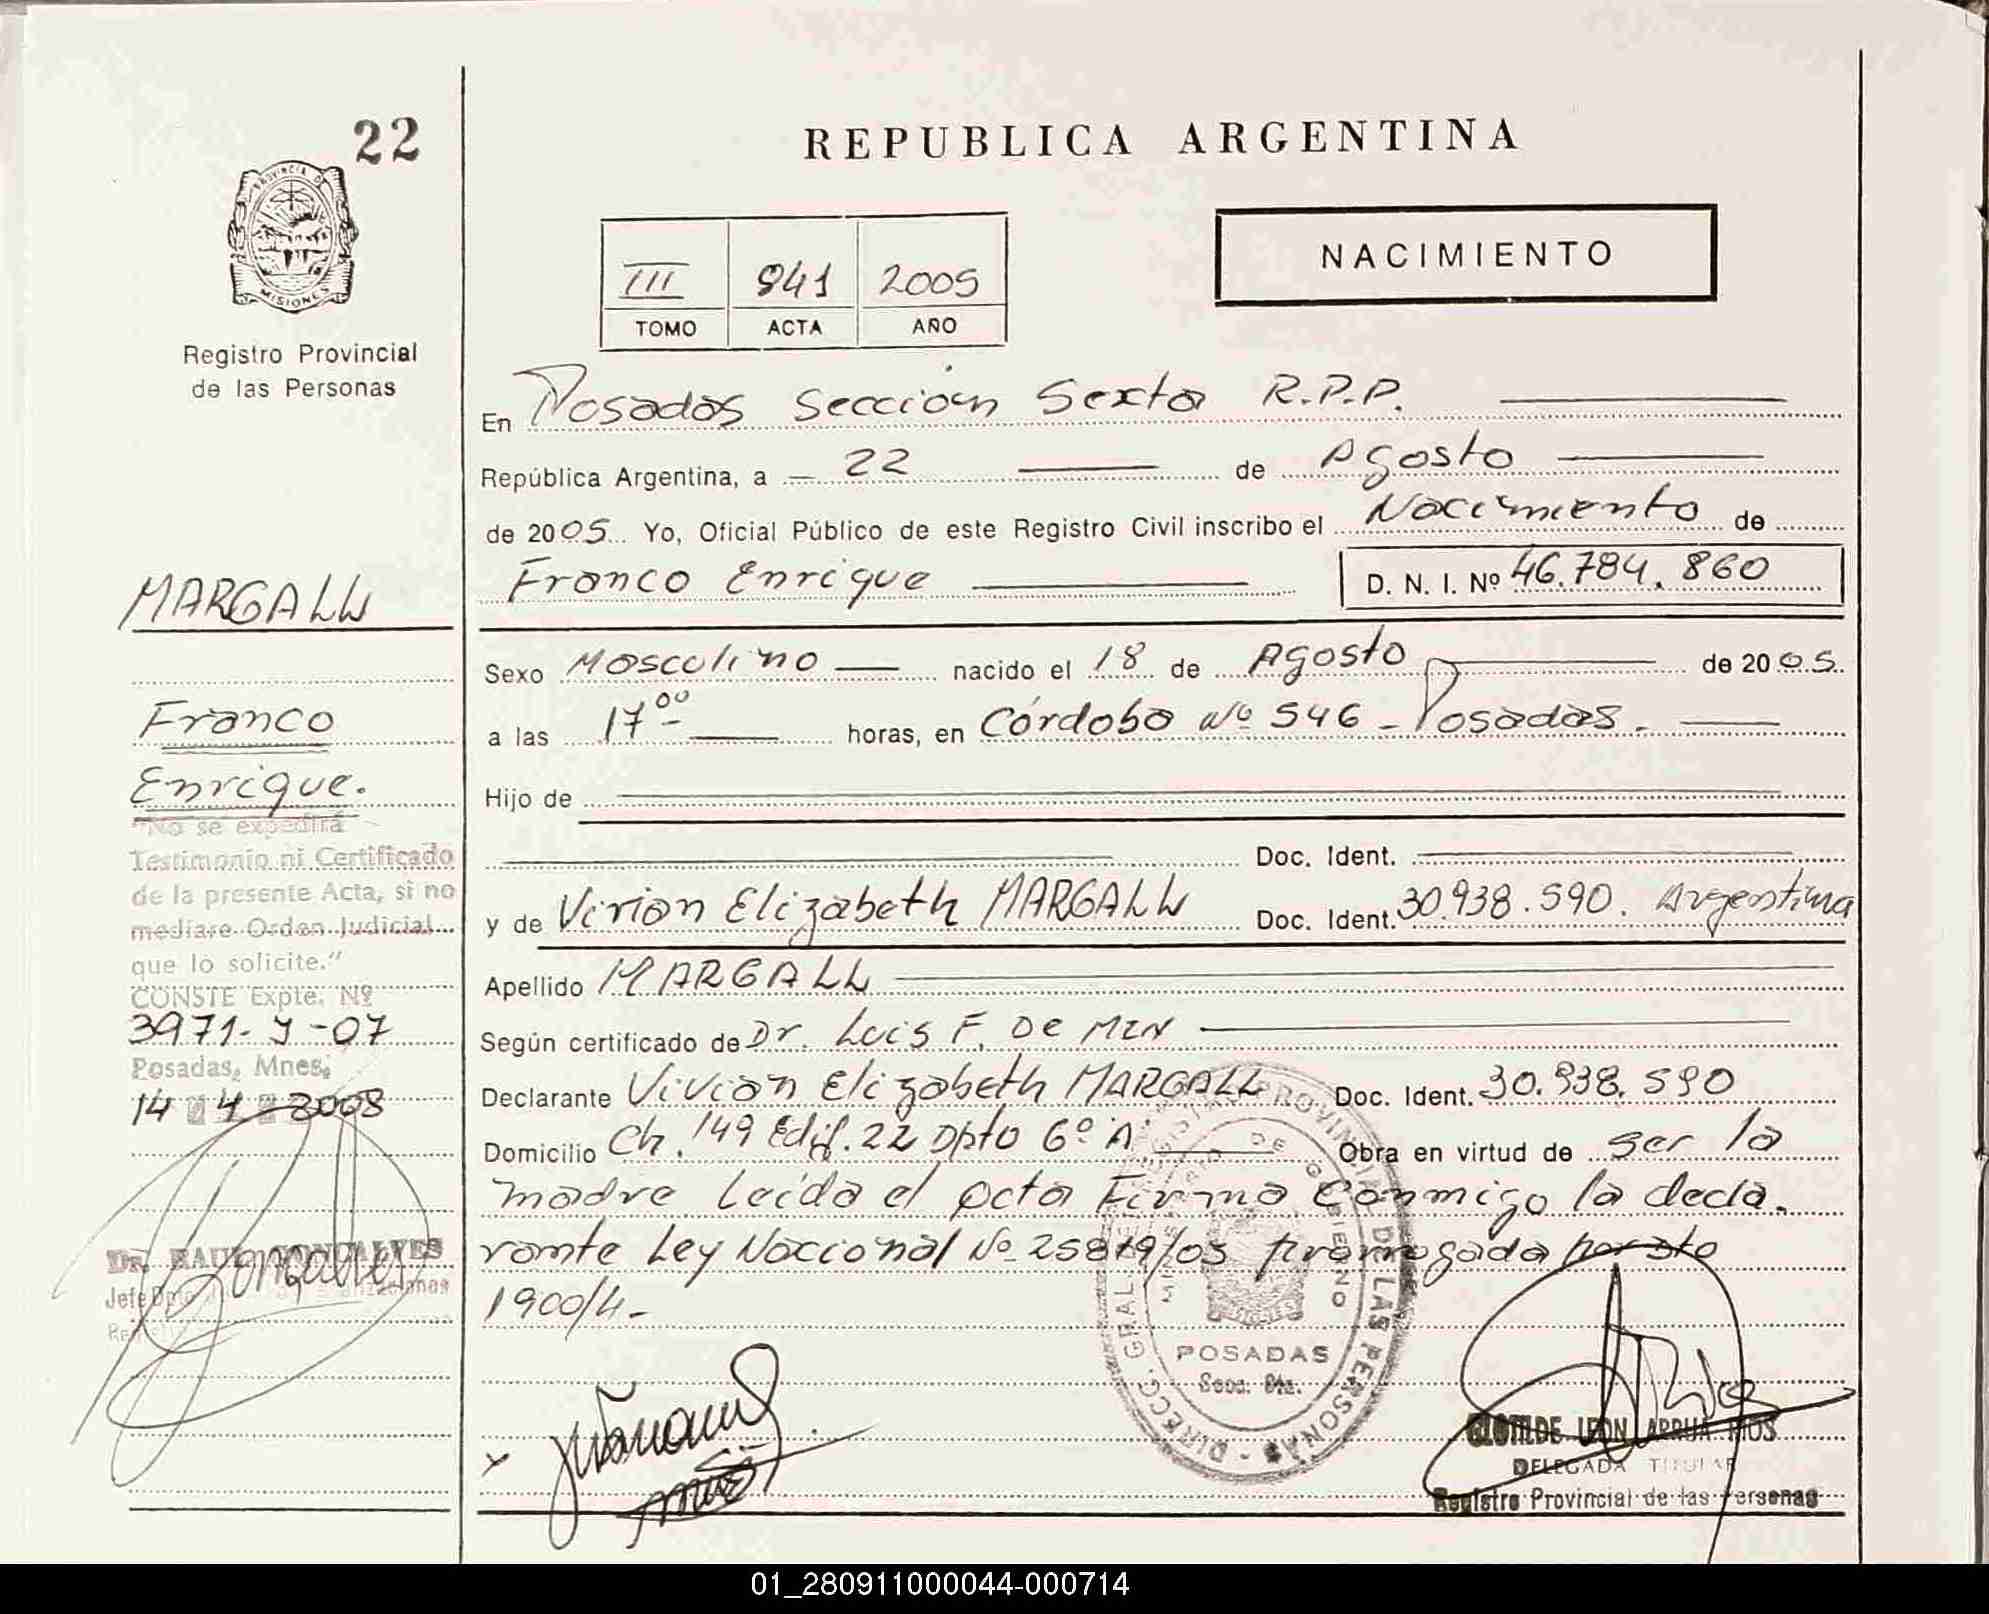 22
PROVINCIA DE
MISIONES
Registro Provincial
de las Personas
REPUBLICA ARGENTINA
NACIMIENTO
III 941 2005
TOMO ACTA AÑO
En Posadas Sección Sexta R.P.P.
República Argentina, a 22 de Agosto
de 2005 Yo, Oficial Público de este Registro Civil inscribo el Nacimiento de
Franco Enrique D. N. I. Nº 46.784.860
Sexo Masculino nacido el 18 de Agosto de 2005.
a las 17⁰⁰ horas, en Córdoba Nº 546 - Posadas.
Hijo de
Doc. Ident.
y de Vivian Elizabeth MARGALL Doc. Ident. 30.938.590. Argentina
Apellido MARGALL
Según certificado de Dr. Luis F. De MIN
Declarante Vivian Elizabeth MARGALL Doc. Ident. 30.938.590
Domicilio Ch. 149 Edif. 22 Dpto 6º A Obra en virtud de ser la
madre Leida el acta Firma Conmigo la decla.
rante Ley Nacional Nº 25819/03 prorrogada por dto
1900/4-
MARGALL
Franco
Enrique.
"No se expedirá
Testimonio ni Certificado
de la presente Acta, si no
mediare Orden Judicial
que lo solicite."
CONSTE Expte. Nº
3971-J-07
Posadas, Mnes,
14 4 2008
Dr. RAUL GONCALVES
Jefe Dpto
DIRECC. GRAL. DE LAS PERSONAS
POSADAS
Secc. 6ta.
CLOTILDE LEON ARRUA RIOS
DELEGADA TITULAR
Registro Provincial de las Personas
01_280911000044-000714